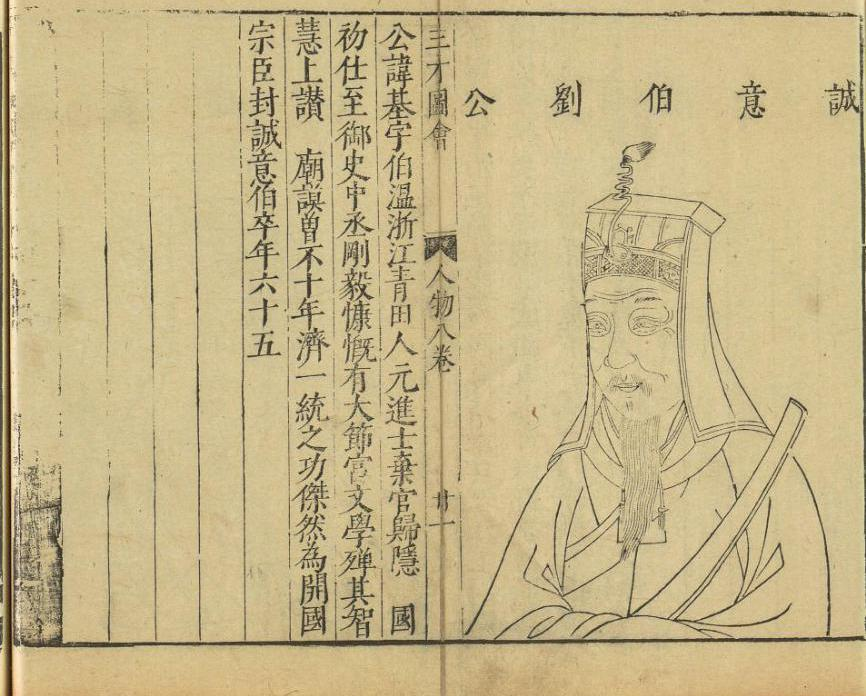 誠意伯劉公
三才圖會 人物八卷 廿一
公諱基字伯溫浙江青田人元進士棄官歸隱 國
初仕至御史中丞剛毅慷慨有大節官文學殫其智
慧上讃 廟謨曽不十年濟一統之功傑然為開國
宗臣封誠意伯卒年六十五